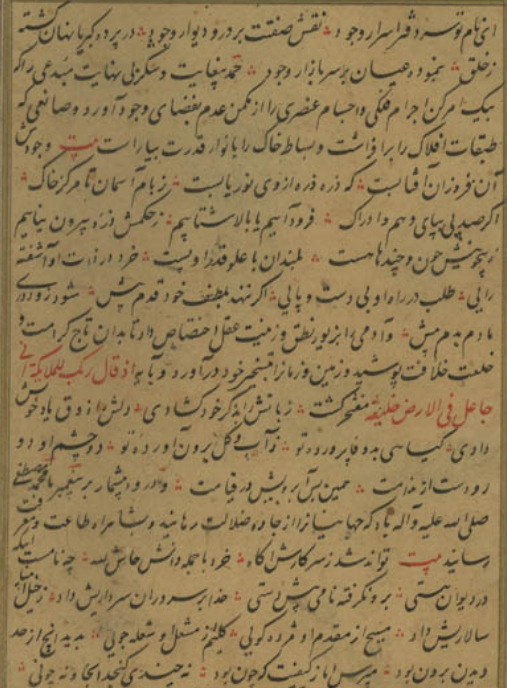 ای نام تو سر دفتر اسرار وجود نقش صنعت بر در و دیوار وجود در پرده کبریا نهان گشته
ز خلق بنموده عیان بر سر بازار وجود حمد بیغایت و شکر بی نهایت مبدعی را که
بیک امر کن اجرام فلکی و اجسام عنصری را از مکمن عدم بفضای وجود آورد و صانعی که
طبقات افلاک را برافراشت و بساط خاک را بانوار قدرت بیاراست بیت وجودش
آن فروزان آفتابست که ذره ذره از وی نور یابست ز بام آسمان تا مرکز خاک
اگر صد پی بپای وهم و ادراک فرود آییم یا بالا شتابیم ز حکمش ذره بیرون نیابیم
چون و چند هست بلندان با علو قدر او پست خرد در ذات او آشفته
رایی طلب در راه او بی دست و پایی اگر ننهد بلطف خود قدم پیش شود
مادم بدم بیش و آدمی را بزیور نطق و زینت عقل اختصاص داد تا بدان تاج کرامت و
خلعت خلافت پوشید و زمین و زمان را مسخر خود درآورد و بآیه اذ قال ربک للملائکة انی
جاعل فی الارض خلیفة مفتخر گشت زبانش را بذکر خود گشادی دلش از ذوق یاد خویش
دادی بدو ز آب و گل برون آورده تو دو چشم او دو
رودست از ندامت همین بس آبرویش در قیامت و درود بیشمار بر پیغمبر ما محمد مصطفی
صلی الله علیه و آله باد که جهانیان را از جاده ضلالت رهانید و بشاهراه طاعت و معرفت
رسانید بیت تواند شد ز سر کارش آگاه خرد با جمله دانش حاش لله چه نامست اینکه
در دیوان هستی برو نگرفته نامی پیش دستی خدا بر سروران سرداریش داد ز خیل انبیا
سالاریش داد مسیح از مقدم او مژده گویی کلیم از مشعل او شعله جویی بدید آنچ از حد
دیدن برون بود مپرس از ما ز کیفیت که چون بود نه چندی گنجد آنجا و نه چونی